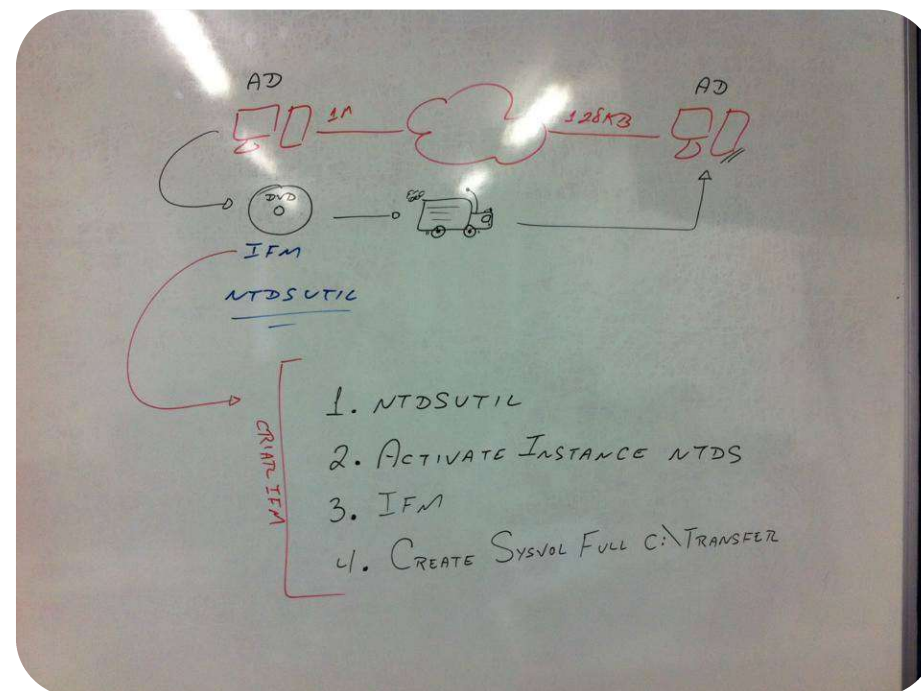 AD
AD
1M
128KB
DVD
IFM
NTDSUTIL
CRIAR IFM
1. NTDSUTIL
2. ACTIVATE INSTANCE NTDS
3. IFM
4. CREATE SYSVOL FULL C:\TRANSFER